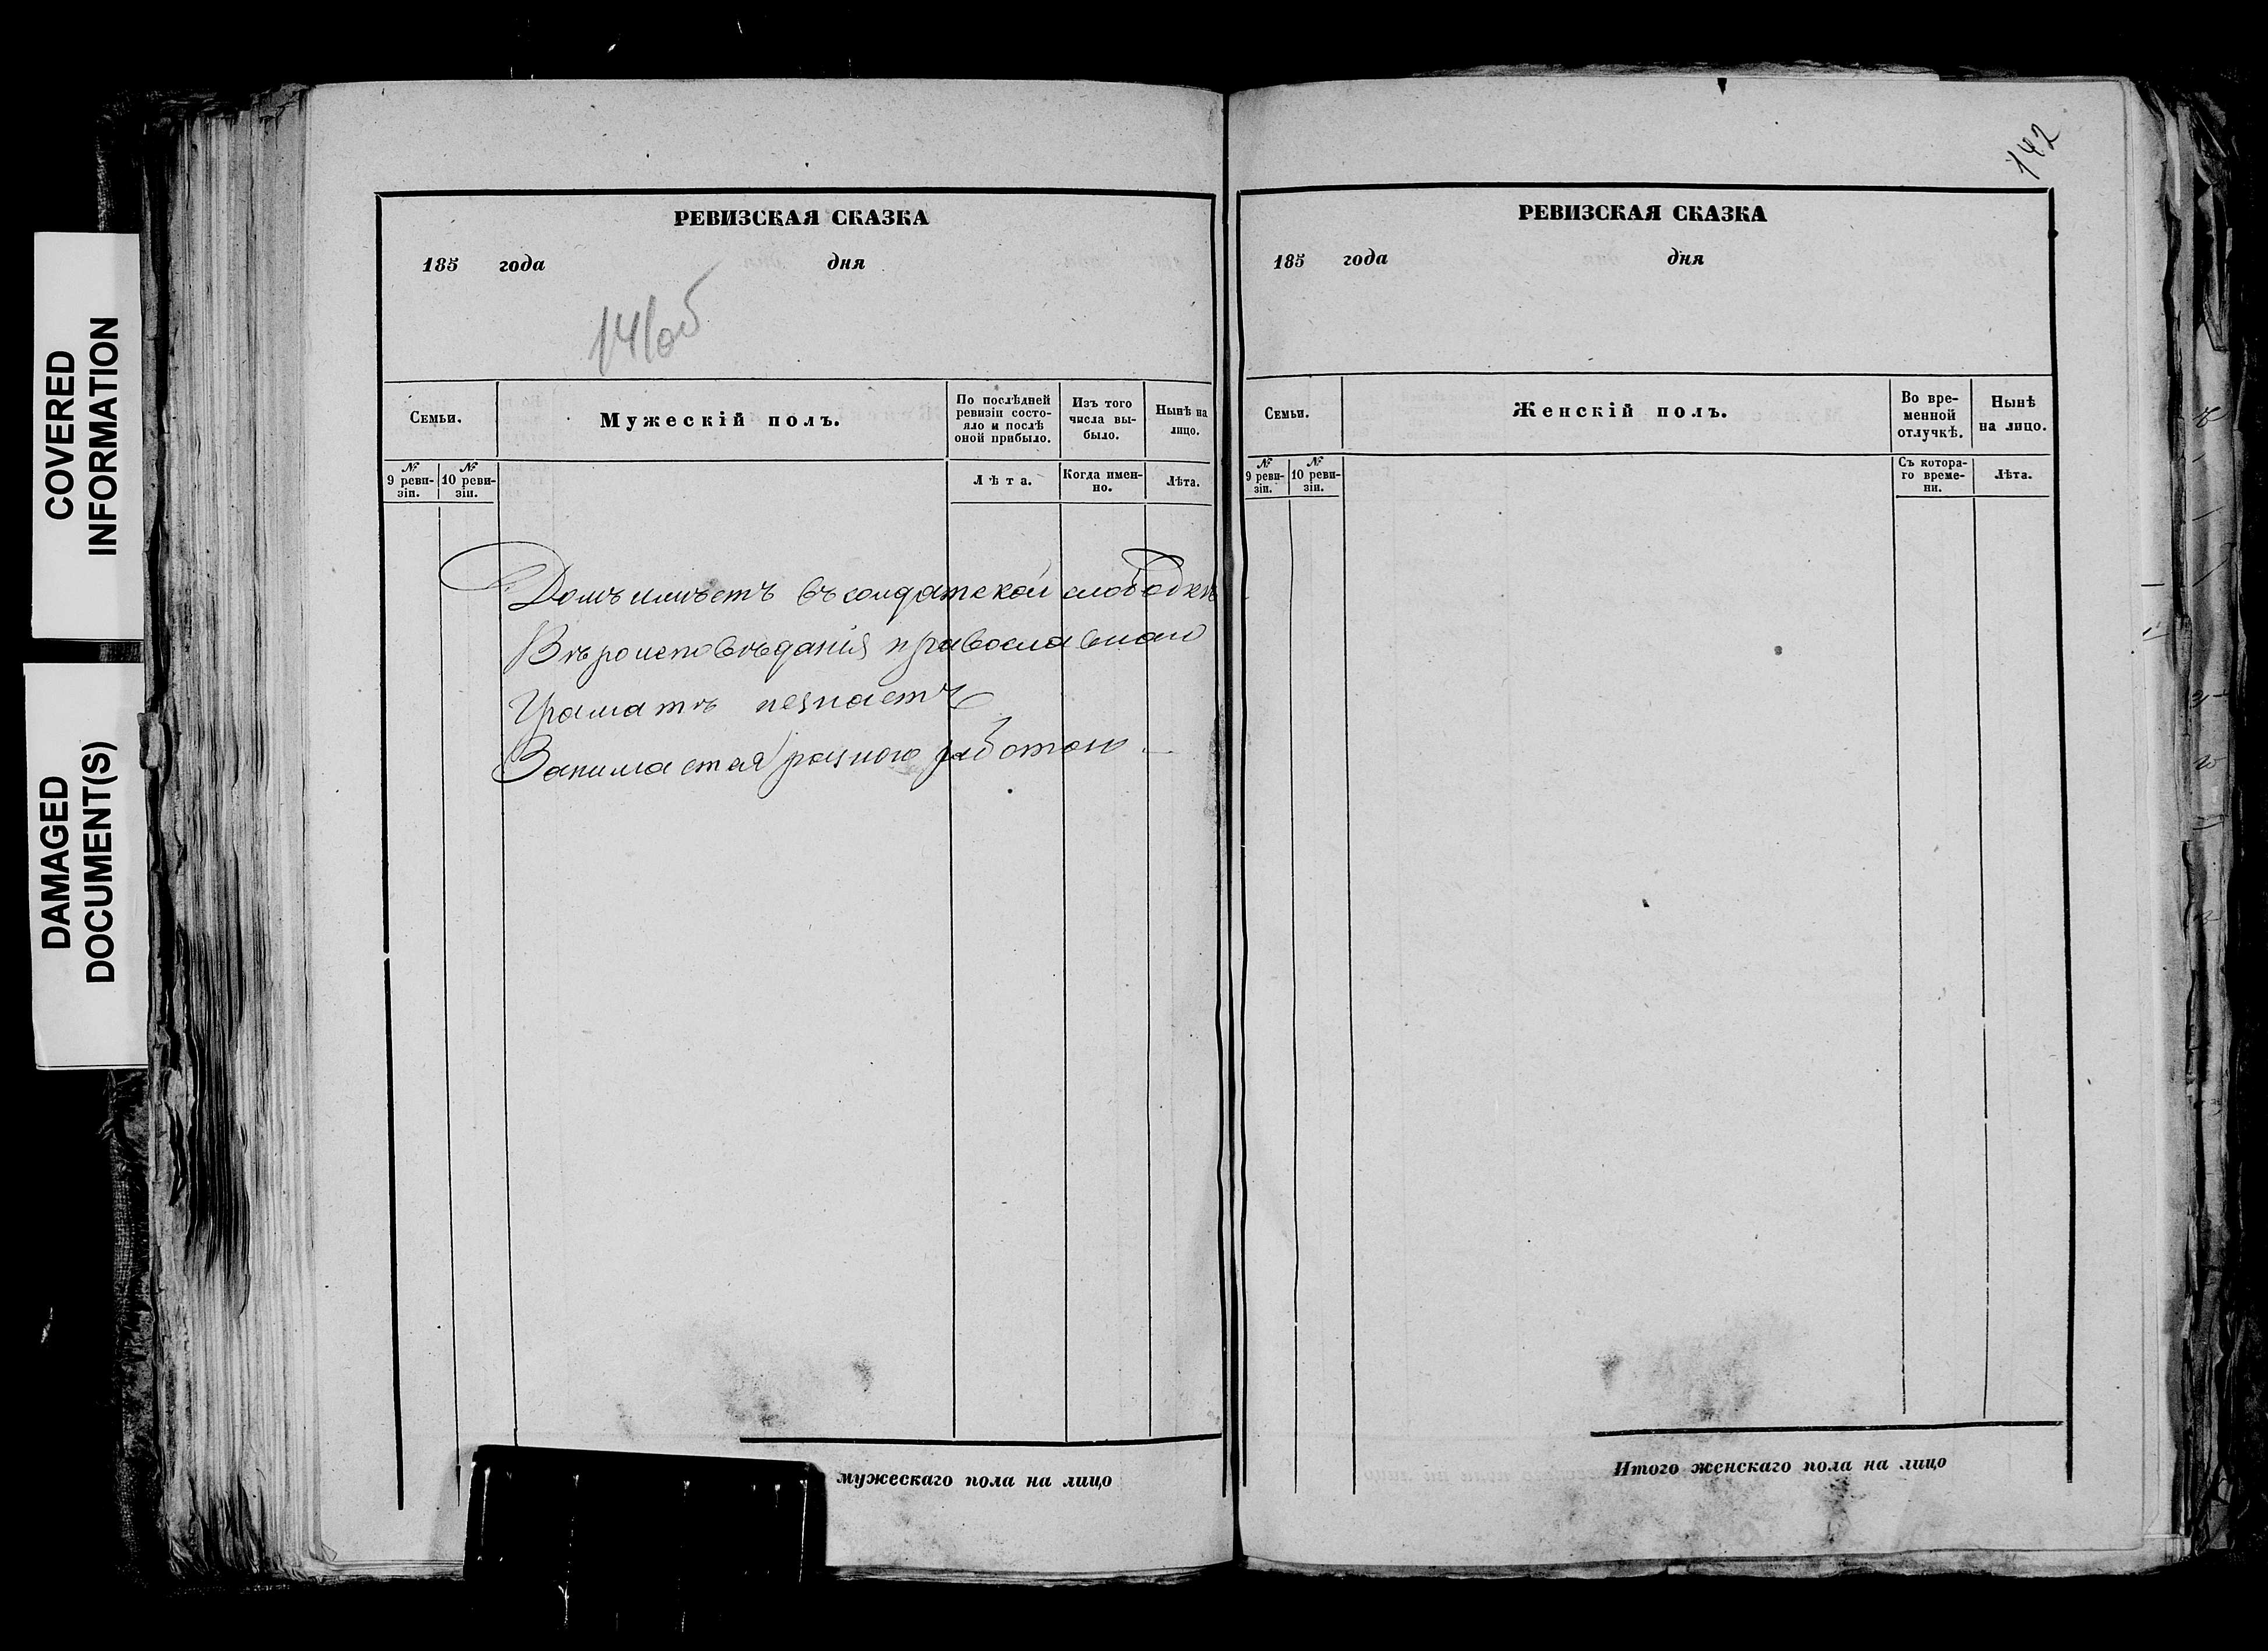 COVERED
INFORMATION
DAMAGED
DOCUMENT(S)
РЕВИЗСКАЯ СКАЗКА
185 года дня
141об
Семьи.
Мужескій полъ.
По послѣдней
ревизіи состо-
яло и послѣ
оной прибыло.
Изъ того
числа вы-
было.
Нынѣ на
лицо.
№
9 реви-
зіи.
№
10 реви-
зіи.
Лѣта.
Когда имен-
но.
Лѣта.
Домъ имѣетъ въ солдатской слободкѣ
Вѣроисповѣданія православнаго
Граматѣ незнаетъ
Занимается разною работою
мужескаго пола на лицо
142
РЕВИЗСКАЯ СКАЗКА
185 года дня
Семьи.
Женскій полъ.
Во вре-
менной
отлучкѣ.
Нынѣ
на лицо.
№
9 реви-
зіи.
№
10 реви-
зіи.
Съ котора-
го време-
ни.
Лѣта.
Итого женскаго пола на лицо